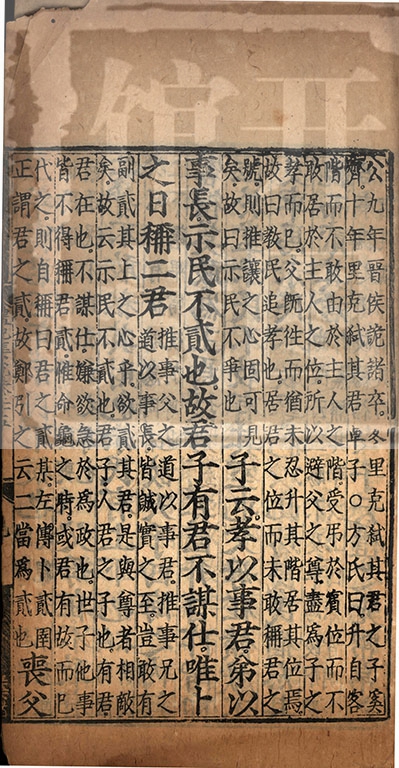 公九年晉侯詭諸卒冬里克弒其君之子奚
齊十年里克弒其君卓子○方氏曰升自客
階而不敢由於主人之階受弔於賓位而不
敢居於主人之位所以避父之尊盡爲子之
孝而已父旣徃而猶未忍升其階居其位焉
故曰敎民追孝也居君之位而未敢稱君之
號則推讓之心固可見
矣故曰示民不爭也
子云孝以事君弟以
事長示民不貳也故君子有君不謀仕唯卜
之日稱二君
推事父之道以事君推事兄之
道以事長皆誠實之至豈敢有
副貳其上之心乎欲貳其君是與尊者相敵
矣故云示民不貳也君子人君之子也有君
君在也不謀仕嫌欲急於爲政也世子他事
皆不得稱君貳惟命龜之時或君有故而已
代之則自稱曰君之貳某左傳卜貳圉
正謂君之貳故鄭引之云二當爲貳也
喪父